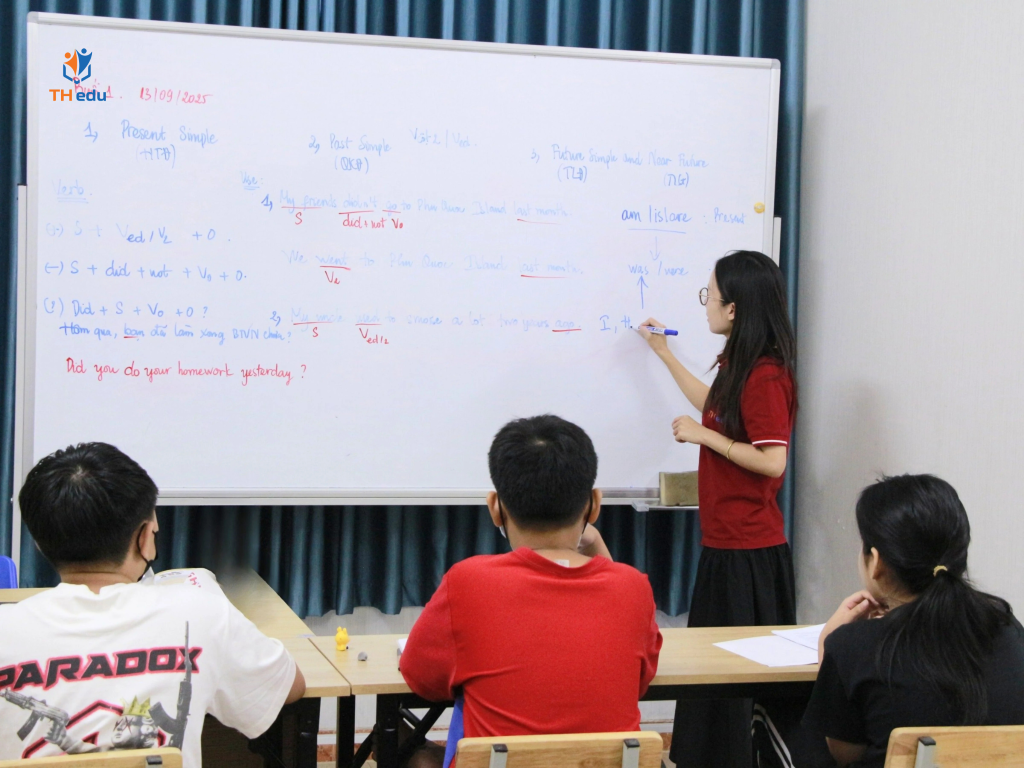 TH edu
Buổi 1. 13/09/2025
1, Present Simple
(HTĐ)
2, Past Simple
(QKĐ)
V2 / Ved.
3, Future Simple and Near Future
(TLĐ) (TLG)
Verb.
Use:
(+) S + Ved/V2 + O.
(-) S + did + not + V0 + O.
(?) Did + S + V0 + O?
Hôm qua, bạn đã làm xong BTVN chưa?
Did you do your homework yesterday?
1, My friends didn't go to Phu Quoc Island last month.
S did+not V0
We went to Phu Quoc Island last month.
V2
2, My uncle used to smoke a lot two years ago.
S Ved/2
am/is/are : Present
was/were
I, th
PARADOX